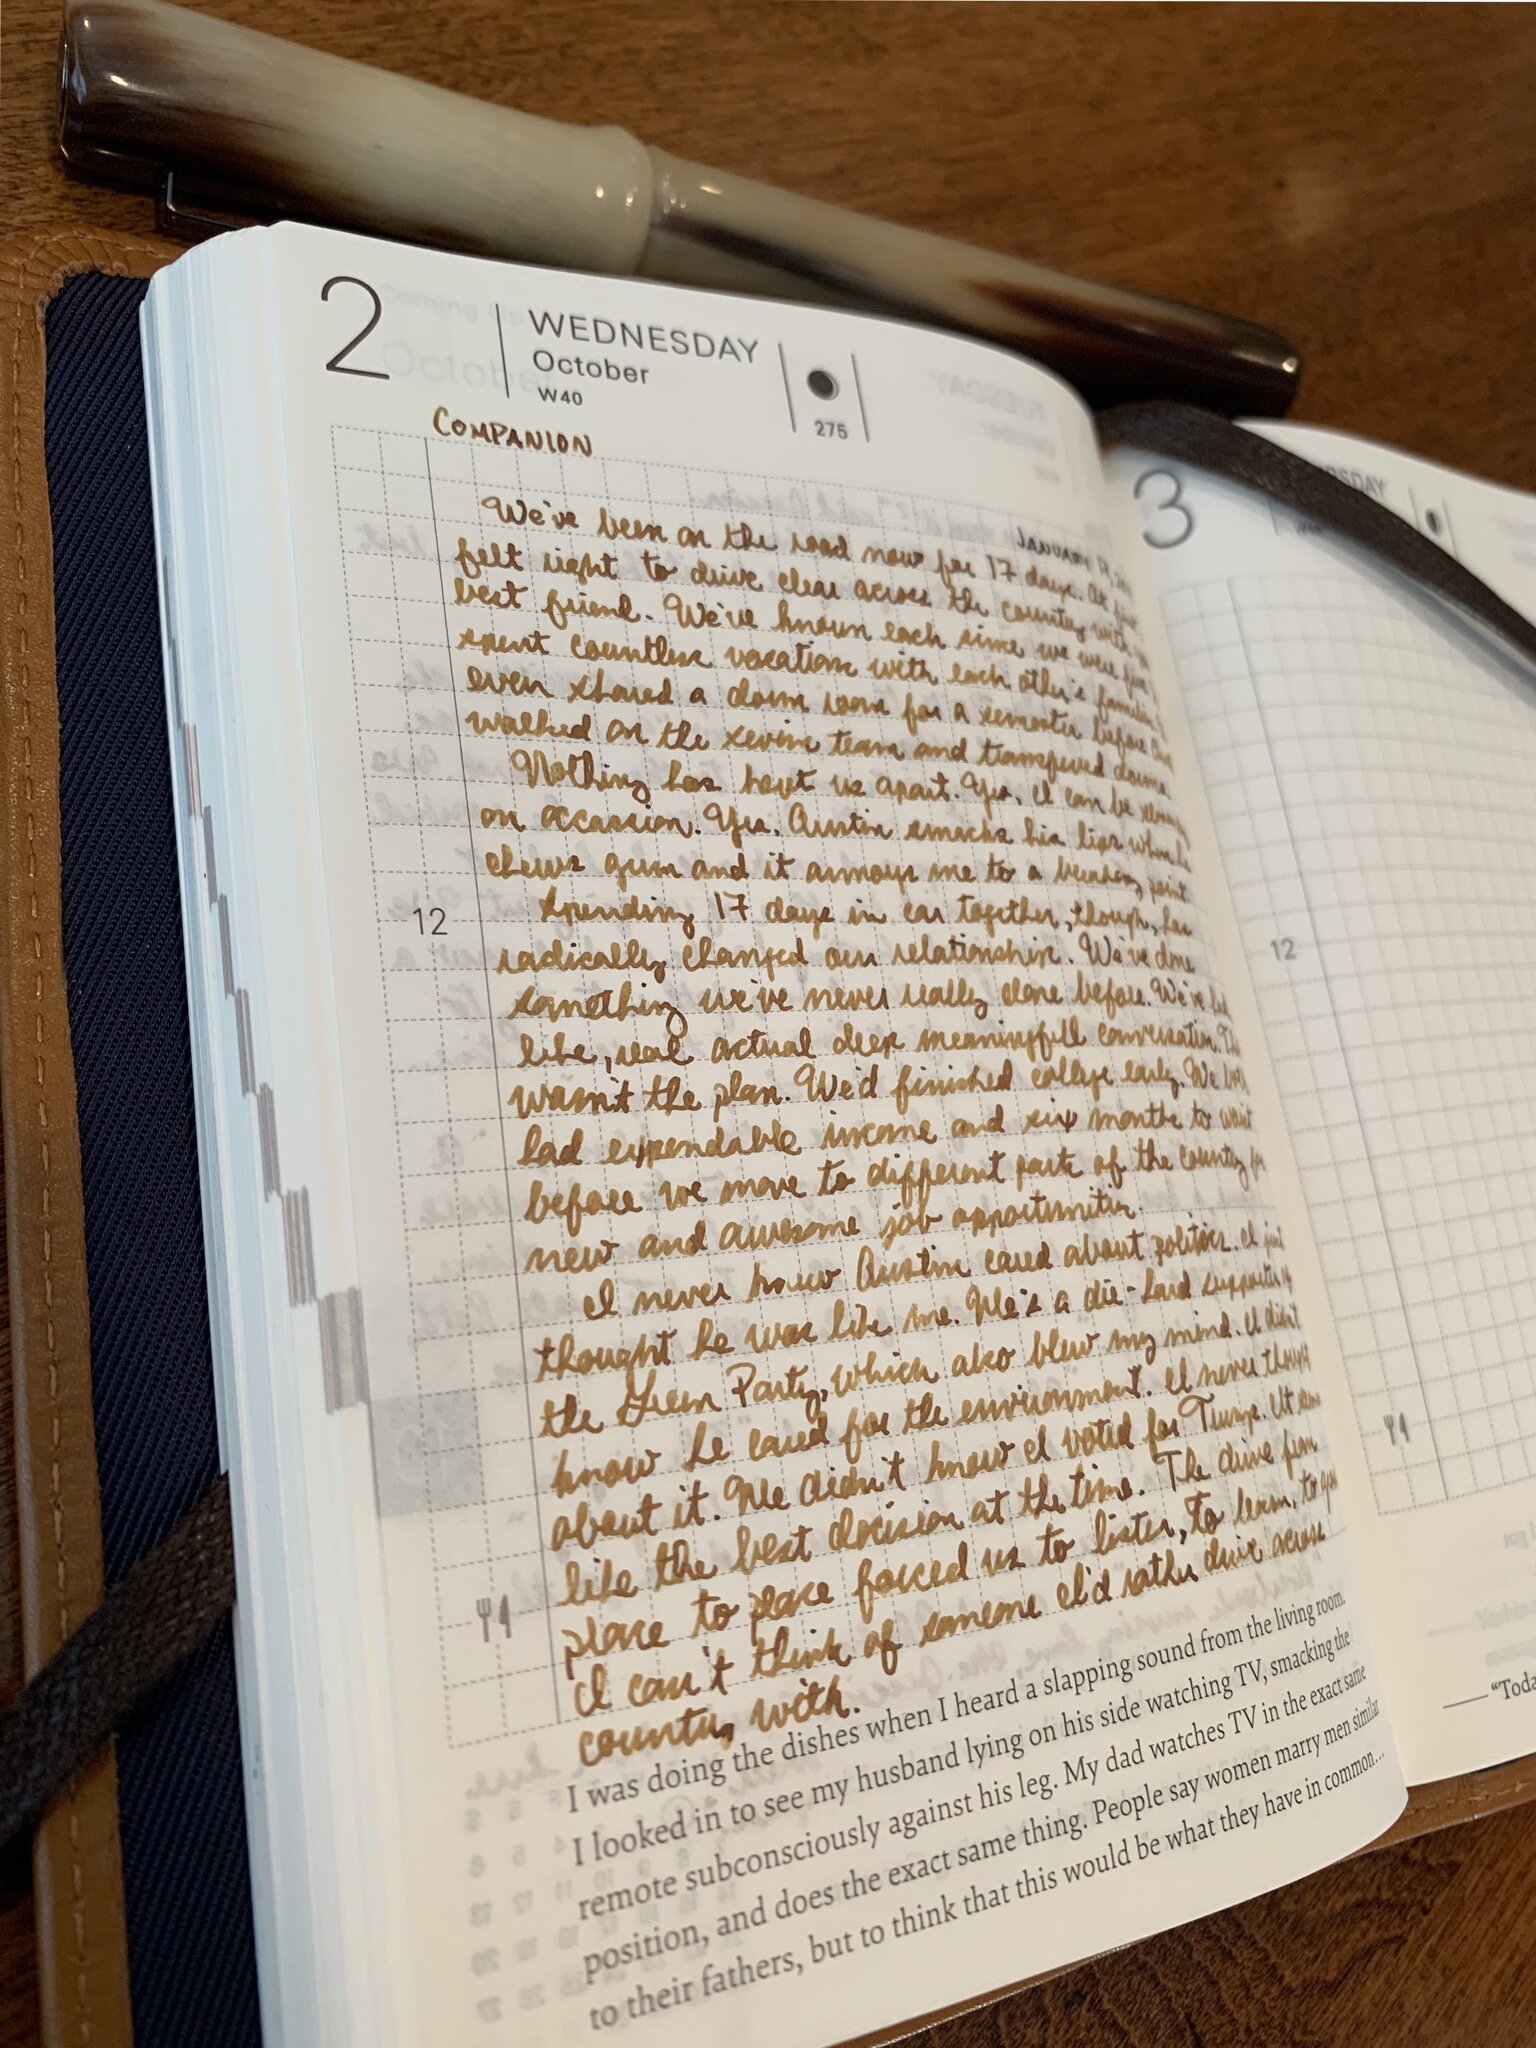 2
WEDNESDAY
October
W40
275
COMPANION
JANUARY
We've been on the road now for 17 days. At first
felt right to drive clear across the country with
best friend. We've known each since we were five
spent countless vacations with each other's families
even shared a dorm room for a semester before
walked on the swim team and transfered dorms.
Nothing has kept us apart. Yes, I can be
on occassion. Yes, Austin smacks his lips when he
chews gum and it annoys me to a breaking point
Spending 17 days in car together, though, has
12
radically changed our relationship. We've done
something we've never really done before. We've
like, real actual deep meaningfull conversation.
wasn't the plan. We'd finished college early. We
had expendable income and six months to wait
before we move to different parts of the country for
new and awesome job opportunities.
I never knew Austin cared about politics. I just
thought he was like me. He's a die-hard supporter of
the Green Party, which also blew my mind. I didn't
know he cared for the environment. I never thought
about it. He didn't know I voted for Trump. It
like the best decision at the time. The drive from
place to place forced us to listen, to learn, to
I can't think of someone I'd rather drive across
country with.
I was doing the dishes when I heard a slapping sound from the living room.
I looked in to see my husband lying on his side watching TV, smacking the
remote subconsciously against his leg. My dad watches TV in the exact same
position, and does the exact same thing. People say women marry men similar
to their fathers, but to think that this would be what they have in common...
3
12
"Toda